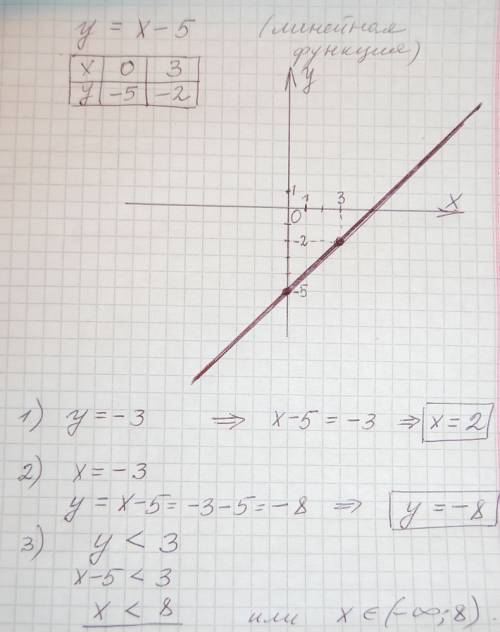 y = x - 5 (линейная
функция)
x 0 3
y -5 -2
y
1
0 1 3 x
-2
-5
1) y = -3 ⇒ x - 5 = -3 ⇒ x = 2
2) x = -3
y = x - 5 = -3 - 5 = -8 ⇒ y = -8
3) y < 3
x - 5 < 3
x < 8 или x ∈ (-∞; 8)